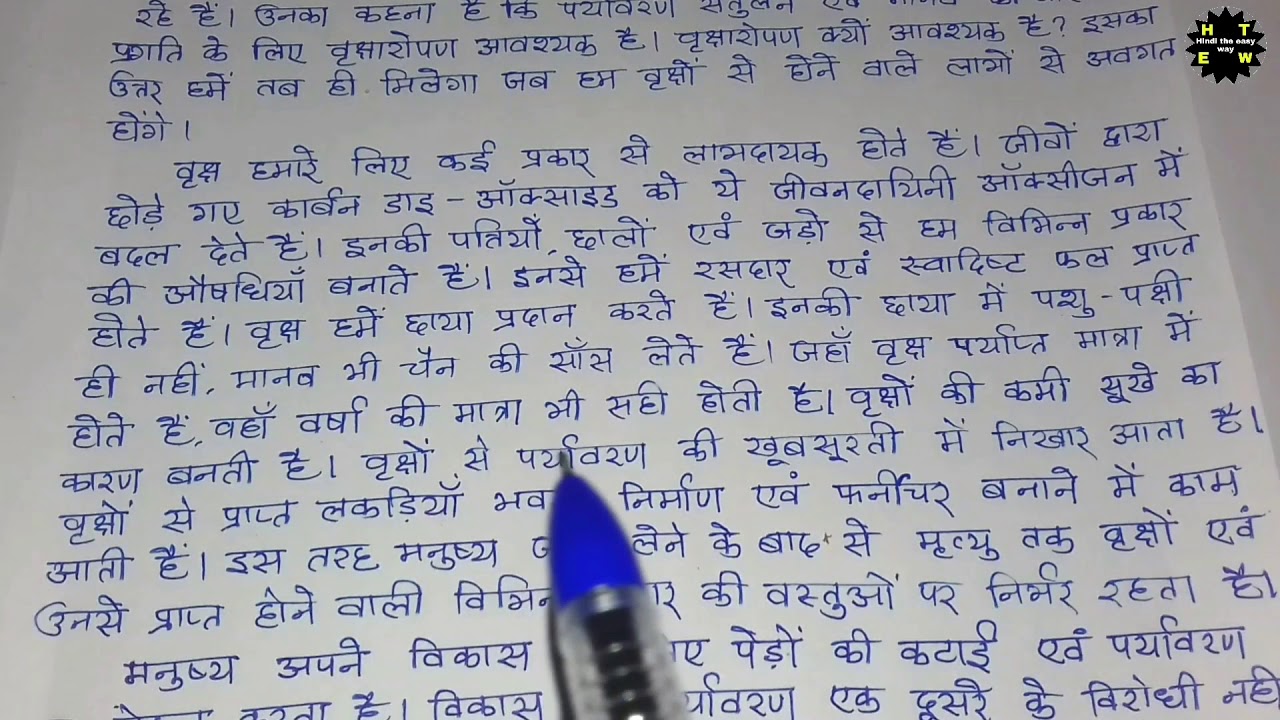 रहे हैं। उनका कहना है कि पर्यावरण संतुलन एवं मानव
प्रगति के लिए वृक्षारोपण आवश्यक है। वृक्षारोपण क्यों आवश्यक है? इसका
उत्तर हमें तब ही मिलेगा जब हम वृक्षों से होने वाले लाभों से अवगत
होंगे।
वृक्ष हमारे लिए कई प्रकार से लाभदायक होते हैं। जीवों द्वारा
छोड़े गए कार्बन डाइ-ऑक्साइड को ये जीवनदायिनी ऑक्सीजन में
बदल देते हैं। इनकी पत्तियों, छालों एवं जड़ो से हम विभिन्न प्रकार
की औषधियाँ बनाते हैं। इनसे हमें रसदार एवं स्वादिष्ट फल प्राप्त
होते हैं। वृक्ष हमें छाया प्रदान करते हैं। इनकी छाया में पशु-पक्षी
ही नहीं, मानव भी चैन की साँस लेते हैं। जहाँ वृक्ष पर्याप्त मात्रा में
होते हैं, वहाँ वर्षा की मात्रा भी सही होती है। वृक्षों की कमी सूखे का
कारण बनती है। वृक्षों से पर्यावरण की खूबसूरती में निखार आता है।
वृक्षों से प्राप्त लकड़ियाँ भव निर्माण एवं फर्नीचर बनाने में काम
आती हैं। इस तरह मनुष्य लेने के बाद से मृत्यु तक वृक्षों एवं
उनसे प्राप्त होने वाली विभिन की वस्तुओं पर निर्भर रहता है।
मनुष्य अपने विकास पेड़ों की कटाई एवं पर्यावरण
करता है। विकास एक दूसरे के विरोधी नहीं
H T
Hindi the easy
way
E W